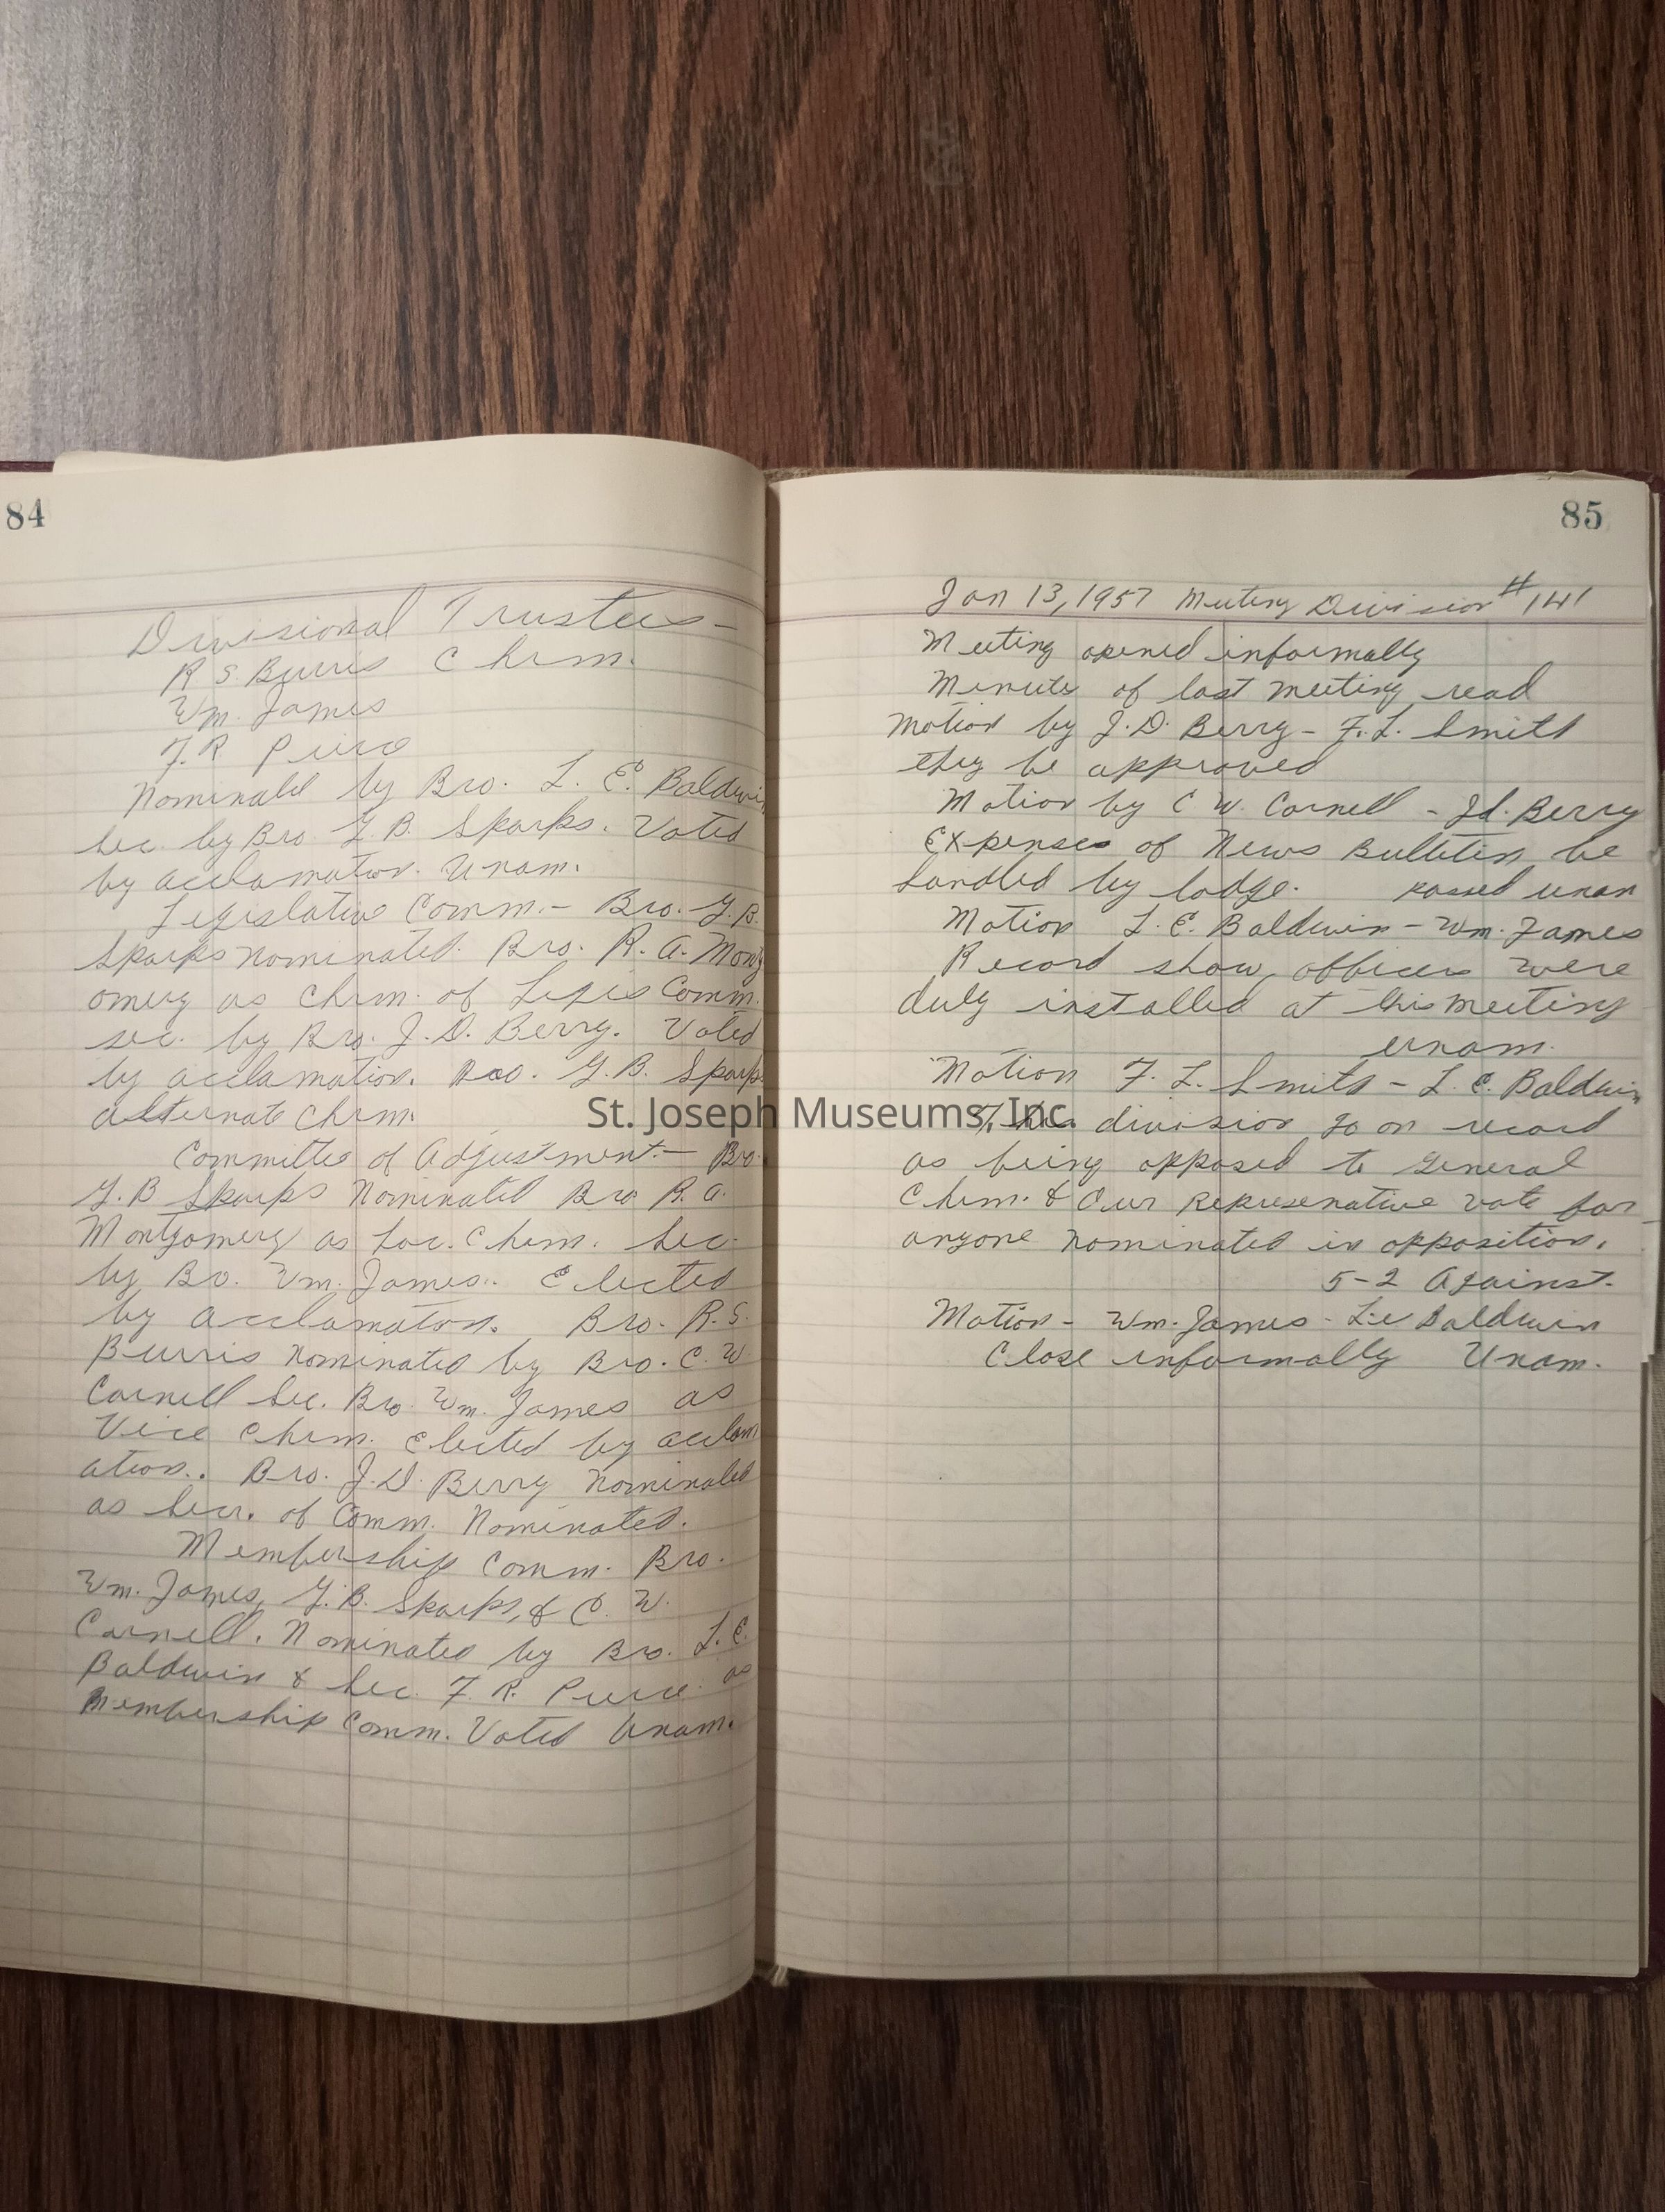 84
Divisional Trustees-
R S Burris Chrm.
Wm. James
F. R Pierce
Nominated by Bro. L. E. Baldwin
Sec. by Bro. G. B. Sparks. Voted
by acclamation. Unam.
Legislative Comm.- Bro. G. B.
Sparks nominated. Bro. R. A. Montg
omery as Chrm. of Legis Comm.
sec. by Bro. J. D. Berry. Voted
by acclamation. Bro. G. B. Sparks
alternate Chrm.
Committee of Adjustment.- Bro.
G. B Sparks Nominated Bro R. A.
Montgomery as Loc. Chrm. Sec.
by Bro. Wm. James. Elected
by acclamation. Bro. R. S.
Burris nominated by Bro. C. W
Cornell Sec. Bro. Wm. James as
Vice Chrm. Elected by acclam
ation. Bro. J. D. Berry Nominated
as Secr. of Comm. Nominated.
Membership Comm. Bro.
Wm. James, G. B. Sparks, & C. W.
Cornell. Nominated by Bro. L. E.
Baldwin & Sec. F. R. Pierce as
Membership Comm. Voted Unam.
85
Jan 13, 1957 Meeting Division #141
Meeting opened informally
Minutes of last meeting read
Motion by J. D. Berry - F. L. Smith
they be approved
Motion by C W. Cornell - Jd. Berry
Expenses of News Bulletin be
handled by lodge. passed unan
Motion L. E. Baldwin - Wm. James
Record show, officers were
duly installed at this meeting
unam.
Motion F. L. Smith - L. E. Baldwin
This division go on record
as being opposed to General
Chrm. & Our Represenative vote for
anyone nominated in opposition.
5-2 Against.
Motion - Wm. James - Lee Baldwin
Close informally Unam.
St. Joseph Museums, Inc.